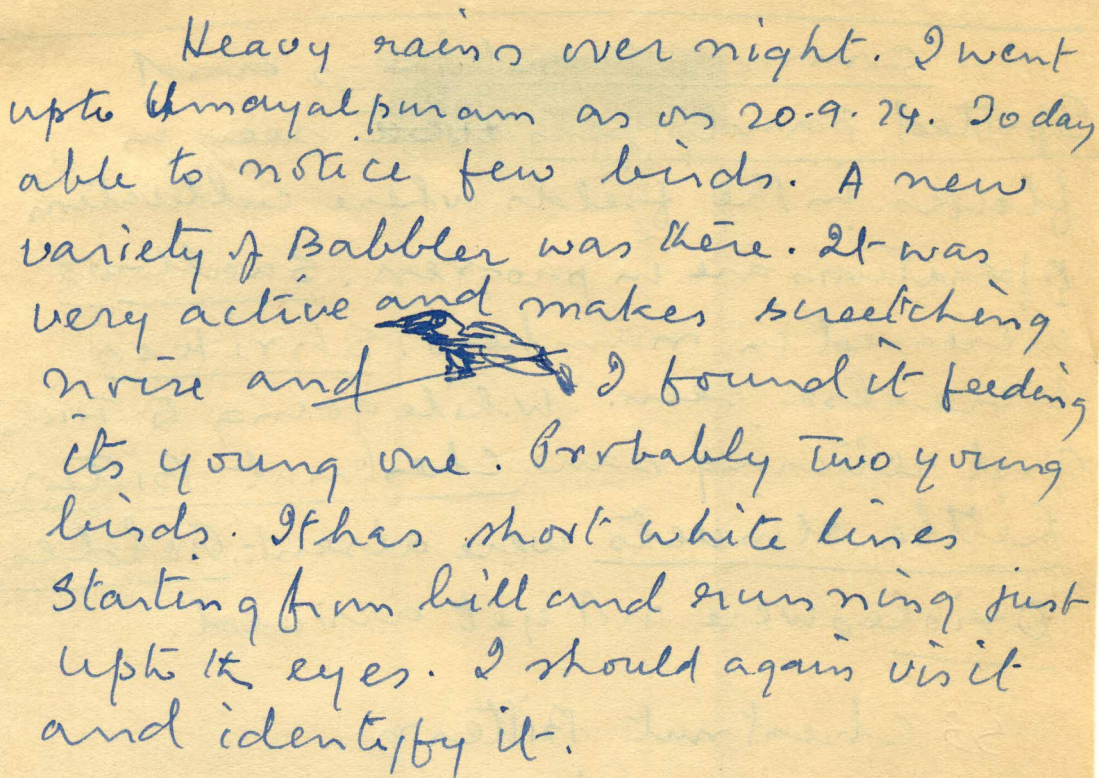 Heavy rains over night. I went
upto Umayalpuram as on 20.9.74. Today
able to notice few birds. A new
variety of Babbler was there. It was
very active and makes screetching
noise and I found it feeding
its young one. Probably Two young
birds. It has short white lines
Starting from bill and running just
upto the eyes. I should again visit
and identify it.